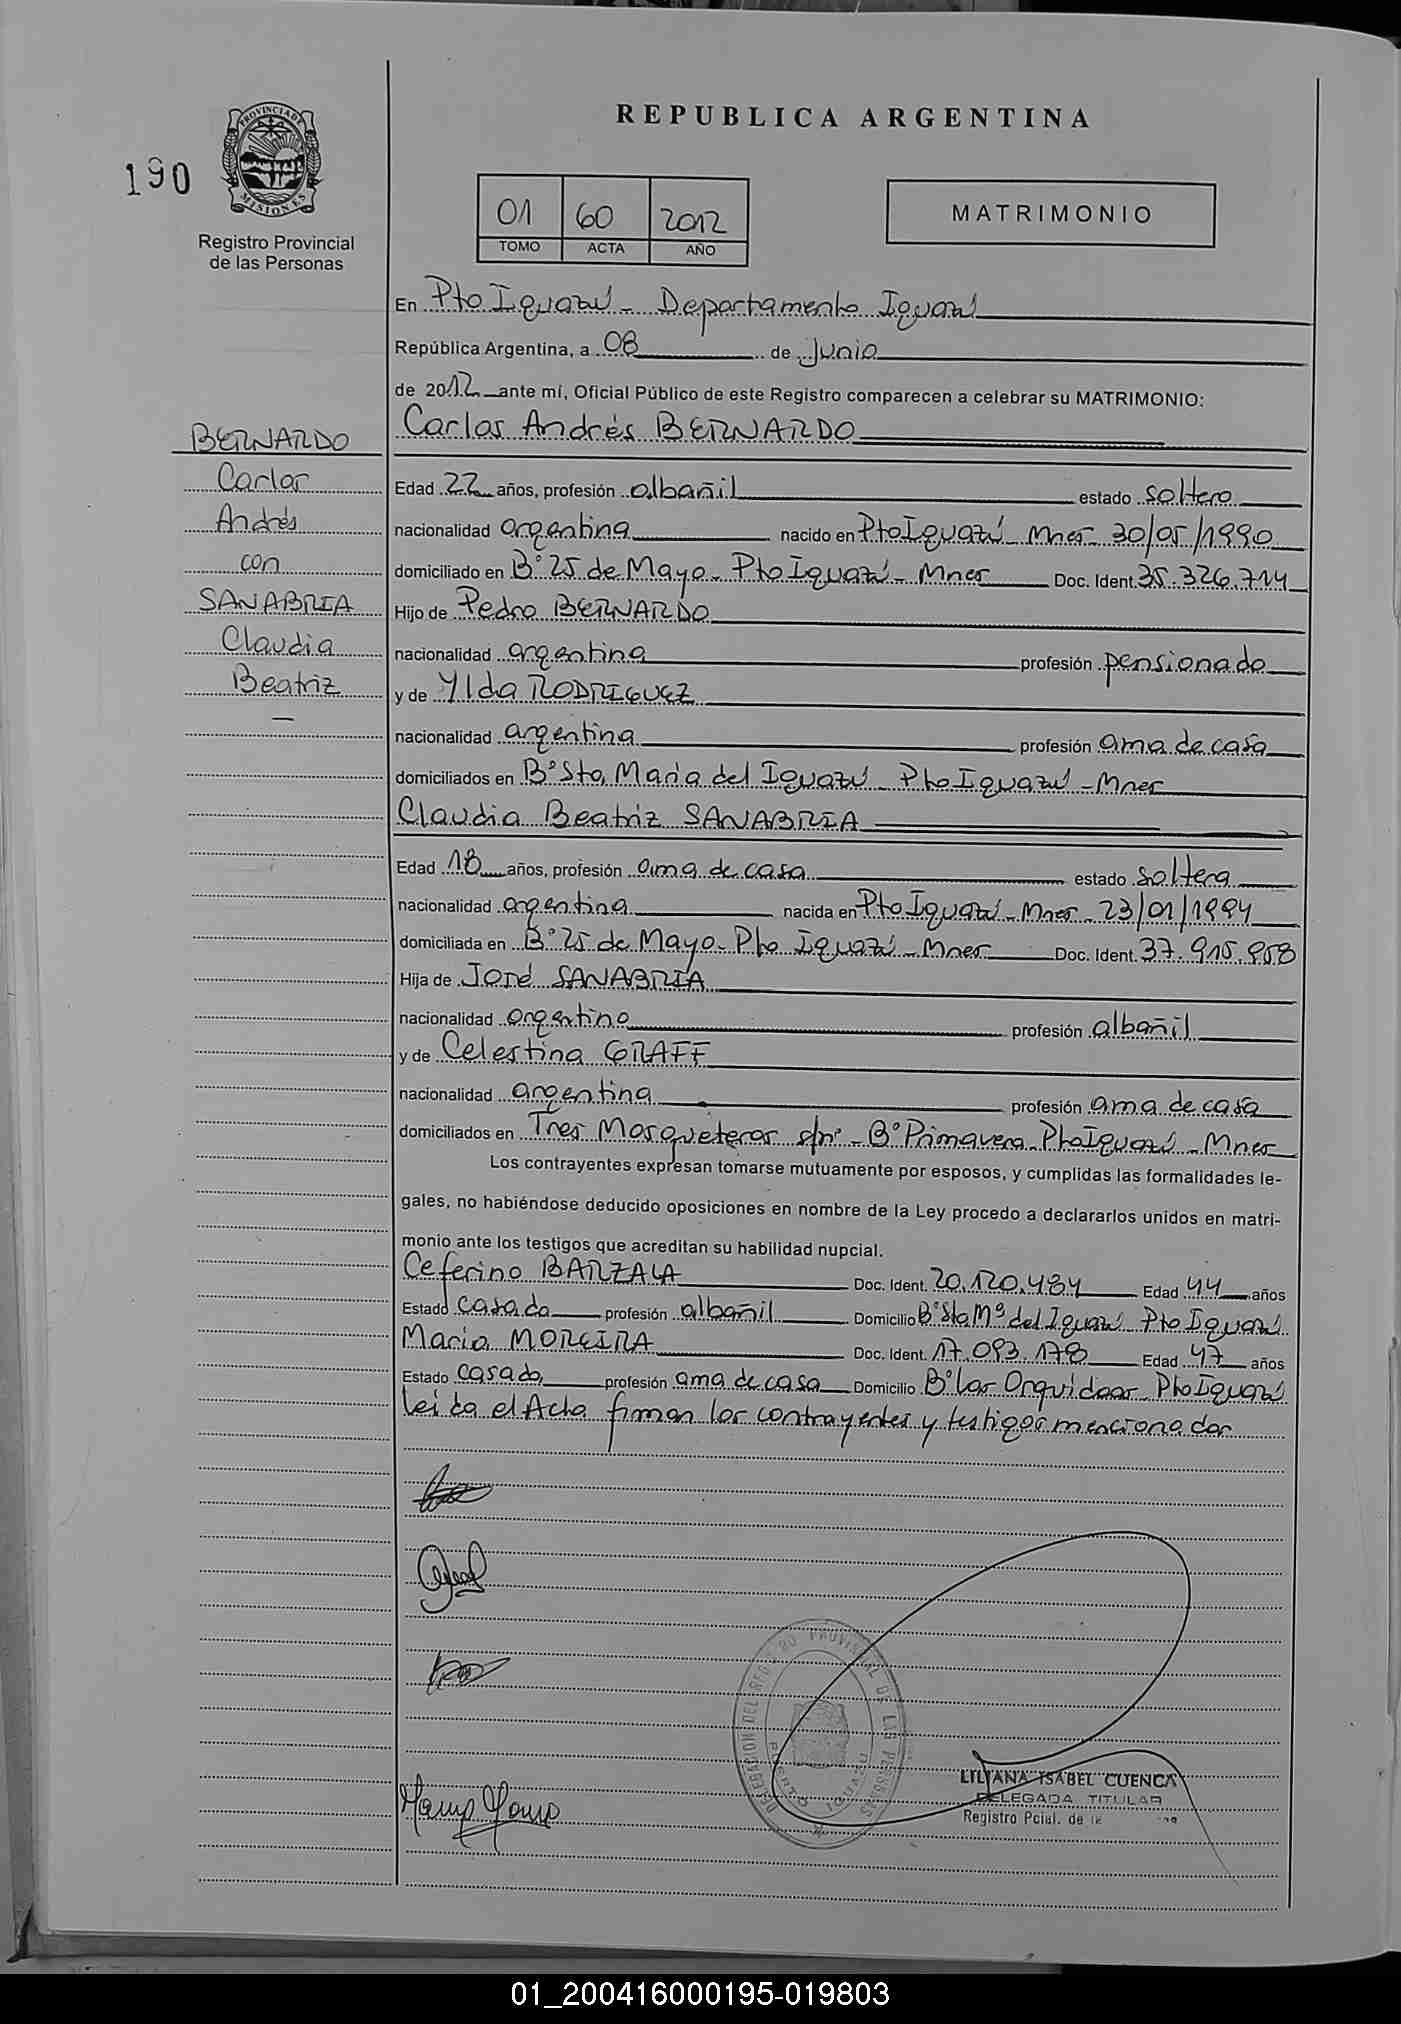 REPUBLICA ARGENTINA
190
PROVINCIA DE
MISIONES
Registro Provincial
de las Personas
01 60 2012
TOMO ACTA AÑO
MATRIMONIO
En Pto Iguazú - Departamento Iguazú
República Argentina, a 08 de Junio
de 2012 ante mí, Oficial Público de este Registro comparecen a celebrar su MATRIMONIO:
BERNARDO
Carlos
Andrés
con
SANABRIA
Claudia
Beatriz
Carlos Andrés BERNARDO
Edad 22 años, profesión albañil estado soltero
nacionalidad argentina nacido en Pto Iguazú Mnes 30/05/1990
domiciliado en B° 25 de Mayo - Pto Iguazú - Mnes Doc. Ident. 35.326.714
Hijo de Pedro BERNARDO
nacionalidad argentina profesión pensionado
y de Ylda RODRIGUEZ
nacionalidad argentina profesión ama de casa
domiciliados en B° Sta Maria del Iguazú - Pto Iguazú - Mnes
Claudia Beatriz SANABRIA
Edad 18 años, profesión ama de casa estado soltera
nacionalidad argentina nacida en Pto Iguazú - Mnes - 23/01/1994
domiciliada en B° 25 de Mayo - Pto Iguazú - Mnes Doc. Ident. 37.915.958
Hija de José SANABRIA
nacionalidad argentino profesión albañil
y de Celestina GRAFF
nacionalidad argentina profesión ama de casa
domiciliados en Tres Mosqueteros s/n° - B° Primavera - Pto Iguazú - Mnes
Los contrayentes expresan tomarse mutuamente por esposos, y cumplidas las formalidades le-
gales, no habiéndose deducido oposiciones en nombre de la Ley procedo a declararlos unidos en matri-
monio ante los testigos que acreditan su habilidad nupcial.
Ceferino BARZALA Doc. Ident. 20.120.484 Edad 44 años
Estado casado profesión albañil Domicilio B° Sta Mª del Iguazú Pto Iguazú
Maria MOREIRA Doc. Ident. 17.093.178 Edad 47 años
Estado casada profesión ama de casa Domicilio B° Las Orquideas Pto Iguazú
Leida el Acta firman los contrayentes y testigos mencionados
DELEGACION DEL REGISTRO PROVINCIAL DE LAS PERSONAS
PUERTO IGUAZU
LILIANA ISABEL CUENCA
DELEGADA TITULAR
Registro Pcial. de
01_200416000195-019803